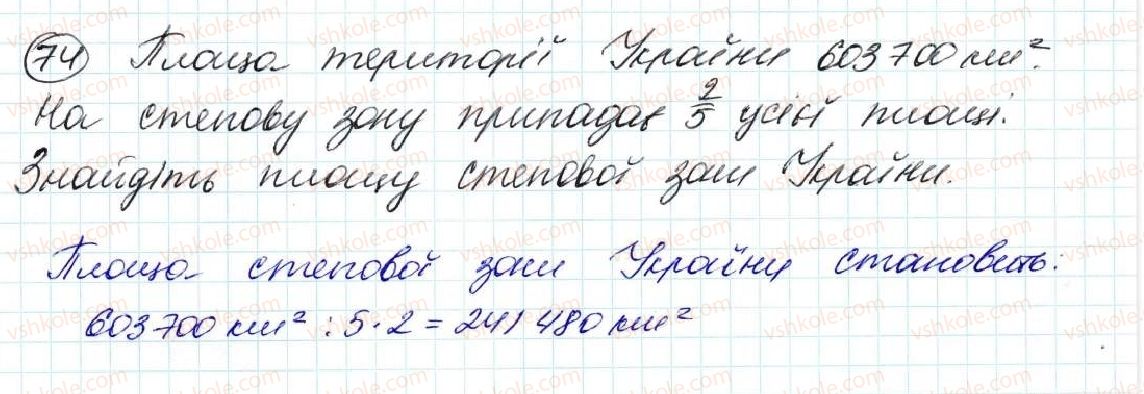 74 Площа території України 603 700 км².
На степову зону припадає 2/5 усієї площі.
Знайдіть площу степової зони України.
Площа степової зони України становить:
603 700 км² : 5 · 2 = 241 480 км²